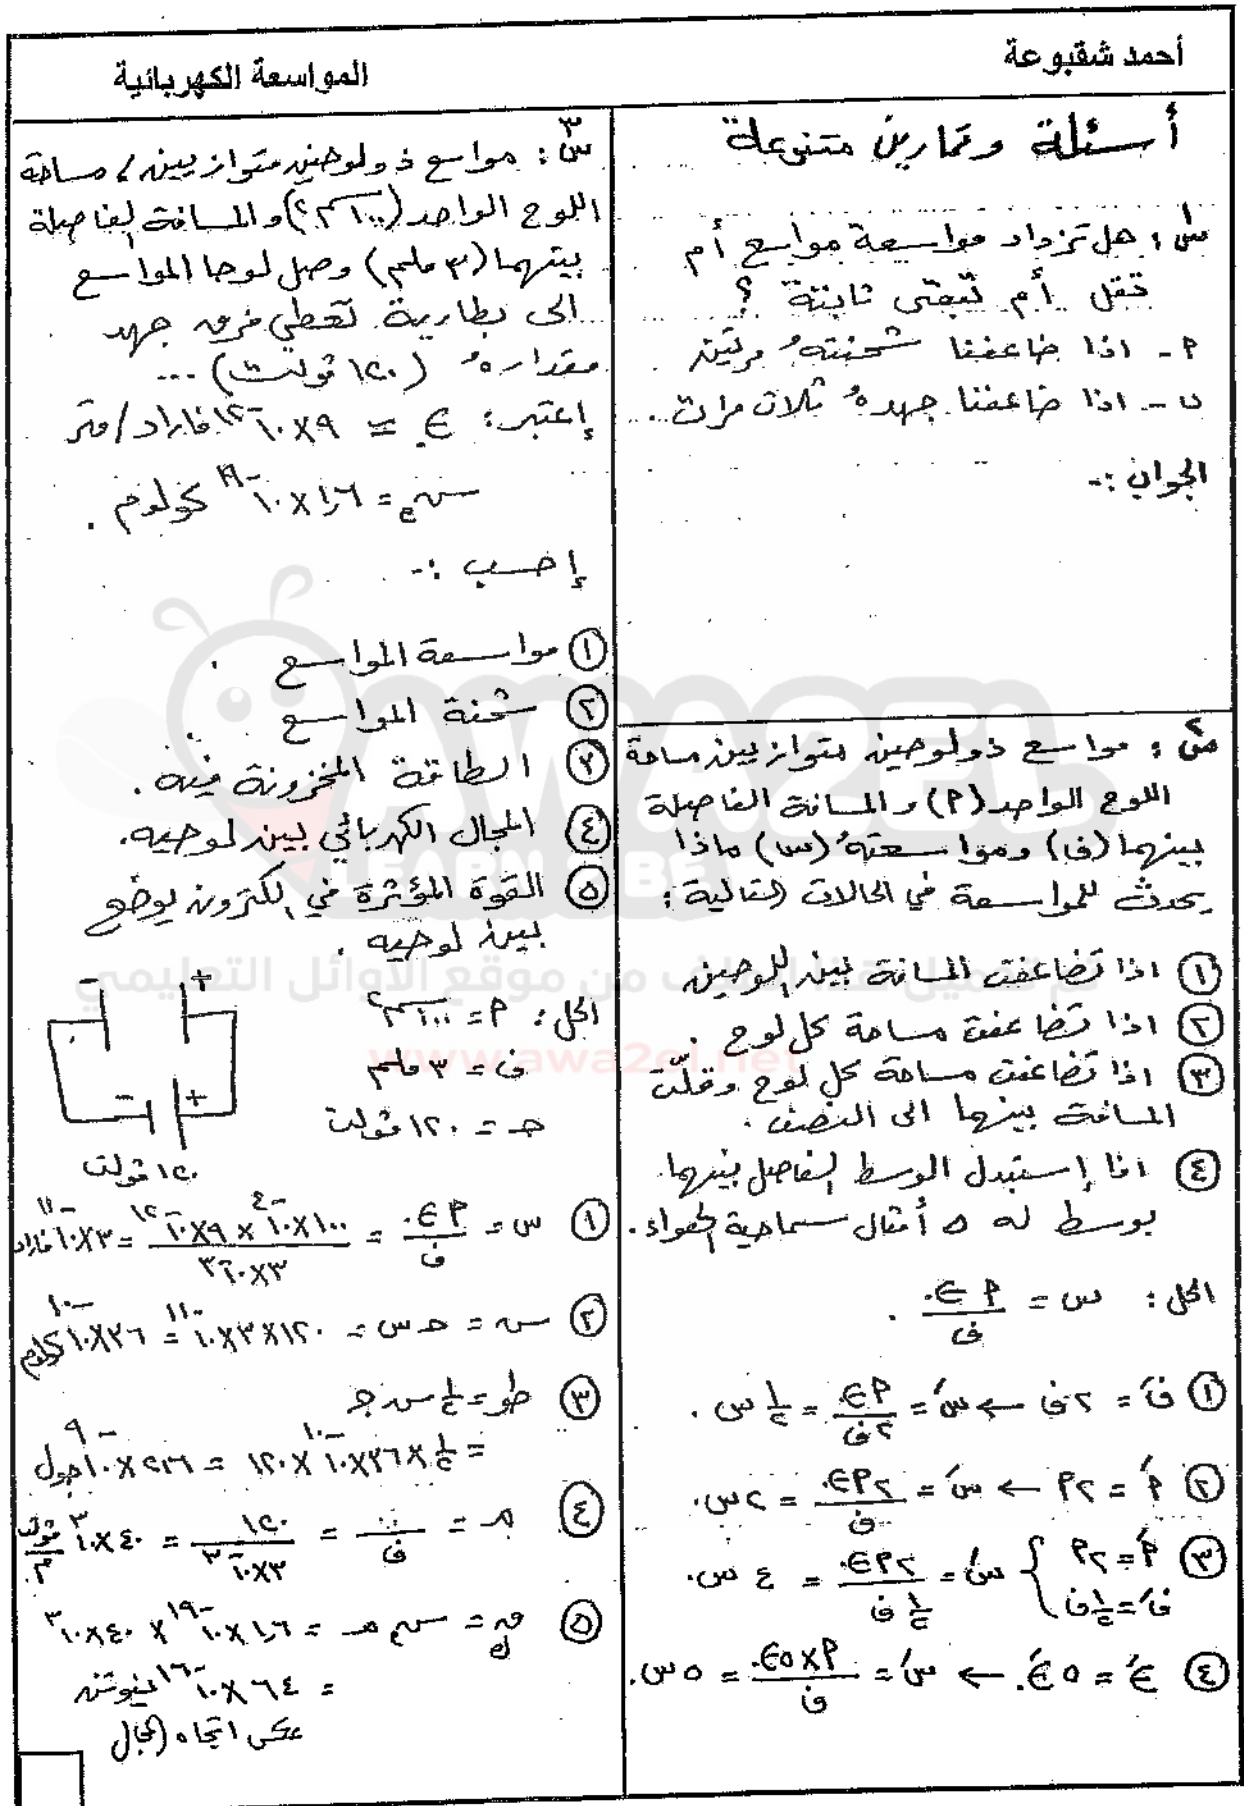 أحمد شقبوعة
المواسعة الكهربائية
أسئلة وتمارين متنوعة
س١: هل تزداد مواسعة مواسع أم
تقل أم تبقى ثابتة ؟
٩ـ اذا ضاعفنا شحنته مرتين
ب ـ اذا ضاعفنا جهده ثلاث مرات .
الجواب :-
س٢: مواسع ذو لوحين متوازيين مساحة
اللوح الواحد (٩) والمسافة الفاصلة
بينهما (ف) ومواسعته (س) ماذا
يحدث للمواسعة في الحالات التالية :
① اذا تضاعفت المسافة بين اللوحين
② اذا تضاعفت مساحة كل لوح .
③ اذا تضاعفت مساحة كل لوح وقلّت
المسافة بينهما الى النصف .
④ اذا إستبدل الوسط الفاصل بينهما
بوسط له ٥ أمثال سماحية الهواء .
الحل : س = ٩ ∈. / ف .
① فَ = ٢ف ← سَ = ٩∈. / ٢ف = ١/٢ س .
② ٩َ = ٢٩ ← سَ = ٢٩∈. / ف = ٢س .
③ ٩َ = ٢٩ } سَ = ٢٩∈. / ١/٢ ف = ٤ س .
فَ = ١/٢ ف
④ ∈َ = ٥ ∈. ← سَ = ٩×٥∈. / ف = ٥ س .
س٣: مواسع ذو لوحين متوازيين ، مساحة
اللوح الواحد (١٠٠سم٢) والمسافة الفاصلة
بينهما (٣ ملم) وصل لوحا المواسع
الى بطارية تعطي فرق جهد
مقداره (١٢٠ ڤولت) ...
إعتبر : ∈. = ٩×١٠-١٢ فاراد/متر
سہe = ١,٦×١٠-١٩ كولوم .
إحسب :-
① مواسعة المواسع .
② شحنة المواسع
③ الطاقة المخزونة فيه .
④ المجال الكهربائي بين لوحيه .
⑤ القوة المؤثرة في إلكترون يوضع
بين لوحيه .
الحل : ٩ = ١٠٠سم٢
ف = ٣ ملم
جـ = ١٢٠ ڤولت
- +
- +
١٢٠ ڤولت
① س = ٩∈. / ف = ١٠٠×١٠-٤ × ٩×١٠-١٢ / ٣×١٠-٣ = ٣×١٠-١١ فاراد
② سہ = جـ س = ١٢٠×٣×١٠-١١ = ٣٦×١٠-١٠ كولوم
③ طو = ١/٢ سہ جـ
= ١/٢ × ٣٦×١٠-١٠ × ١٢٠ = ٢١٦×١٠-٩ جول
④ مـ = جـ / ف = ١٢٠ / ٣×١٠-٣ = ٤٠×١٠٣ ڤولت/م
⑤ قك = سہe مـ = ١,٦×١٠-١٩ × ٤٠×١٠٣
= ٦٤×١٠-١٦ نيوتن
عكس اتجاه المجال
AWA2EL
LEARN 2 BE
تم تحميل هذا الملف من موقع الأوائل التعليمي
www.awa2el.net